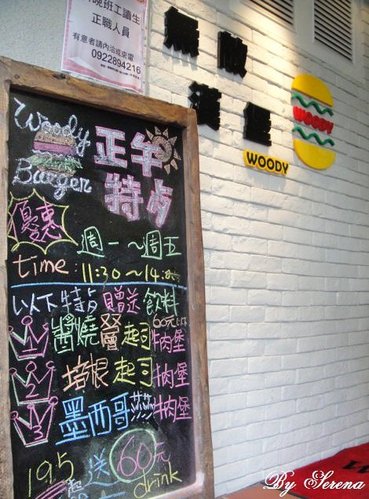 晚班工讀生
正職人員
有意者請內洽或來電
0922894216
無敵
漢堡
WOODY
WOODY
Woody
Burger
正午
特卡
優惠
週一～週五
time: 11:30～14:00
以下特卡贈送飲料
1 醬燒層起司牛肉堡
2 培根起司牛肉堡
3 墨西哥莎莎牛肉堡
195 送 60元
drink
By Serena